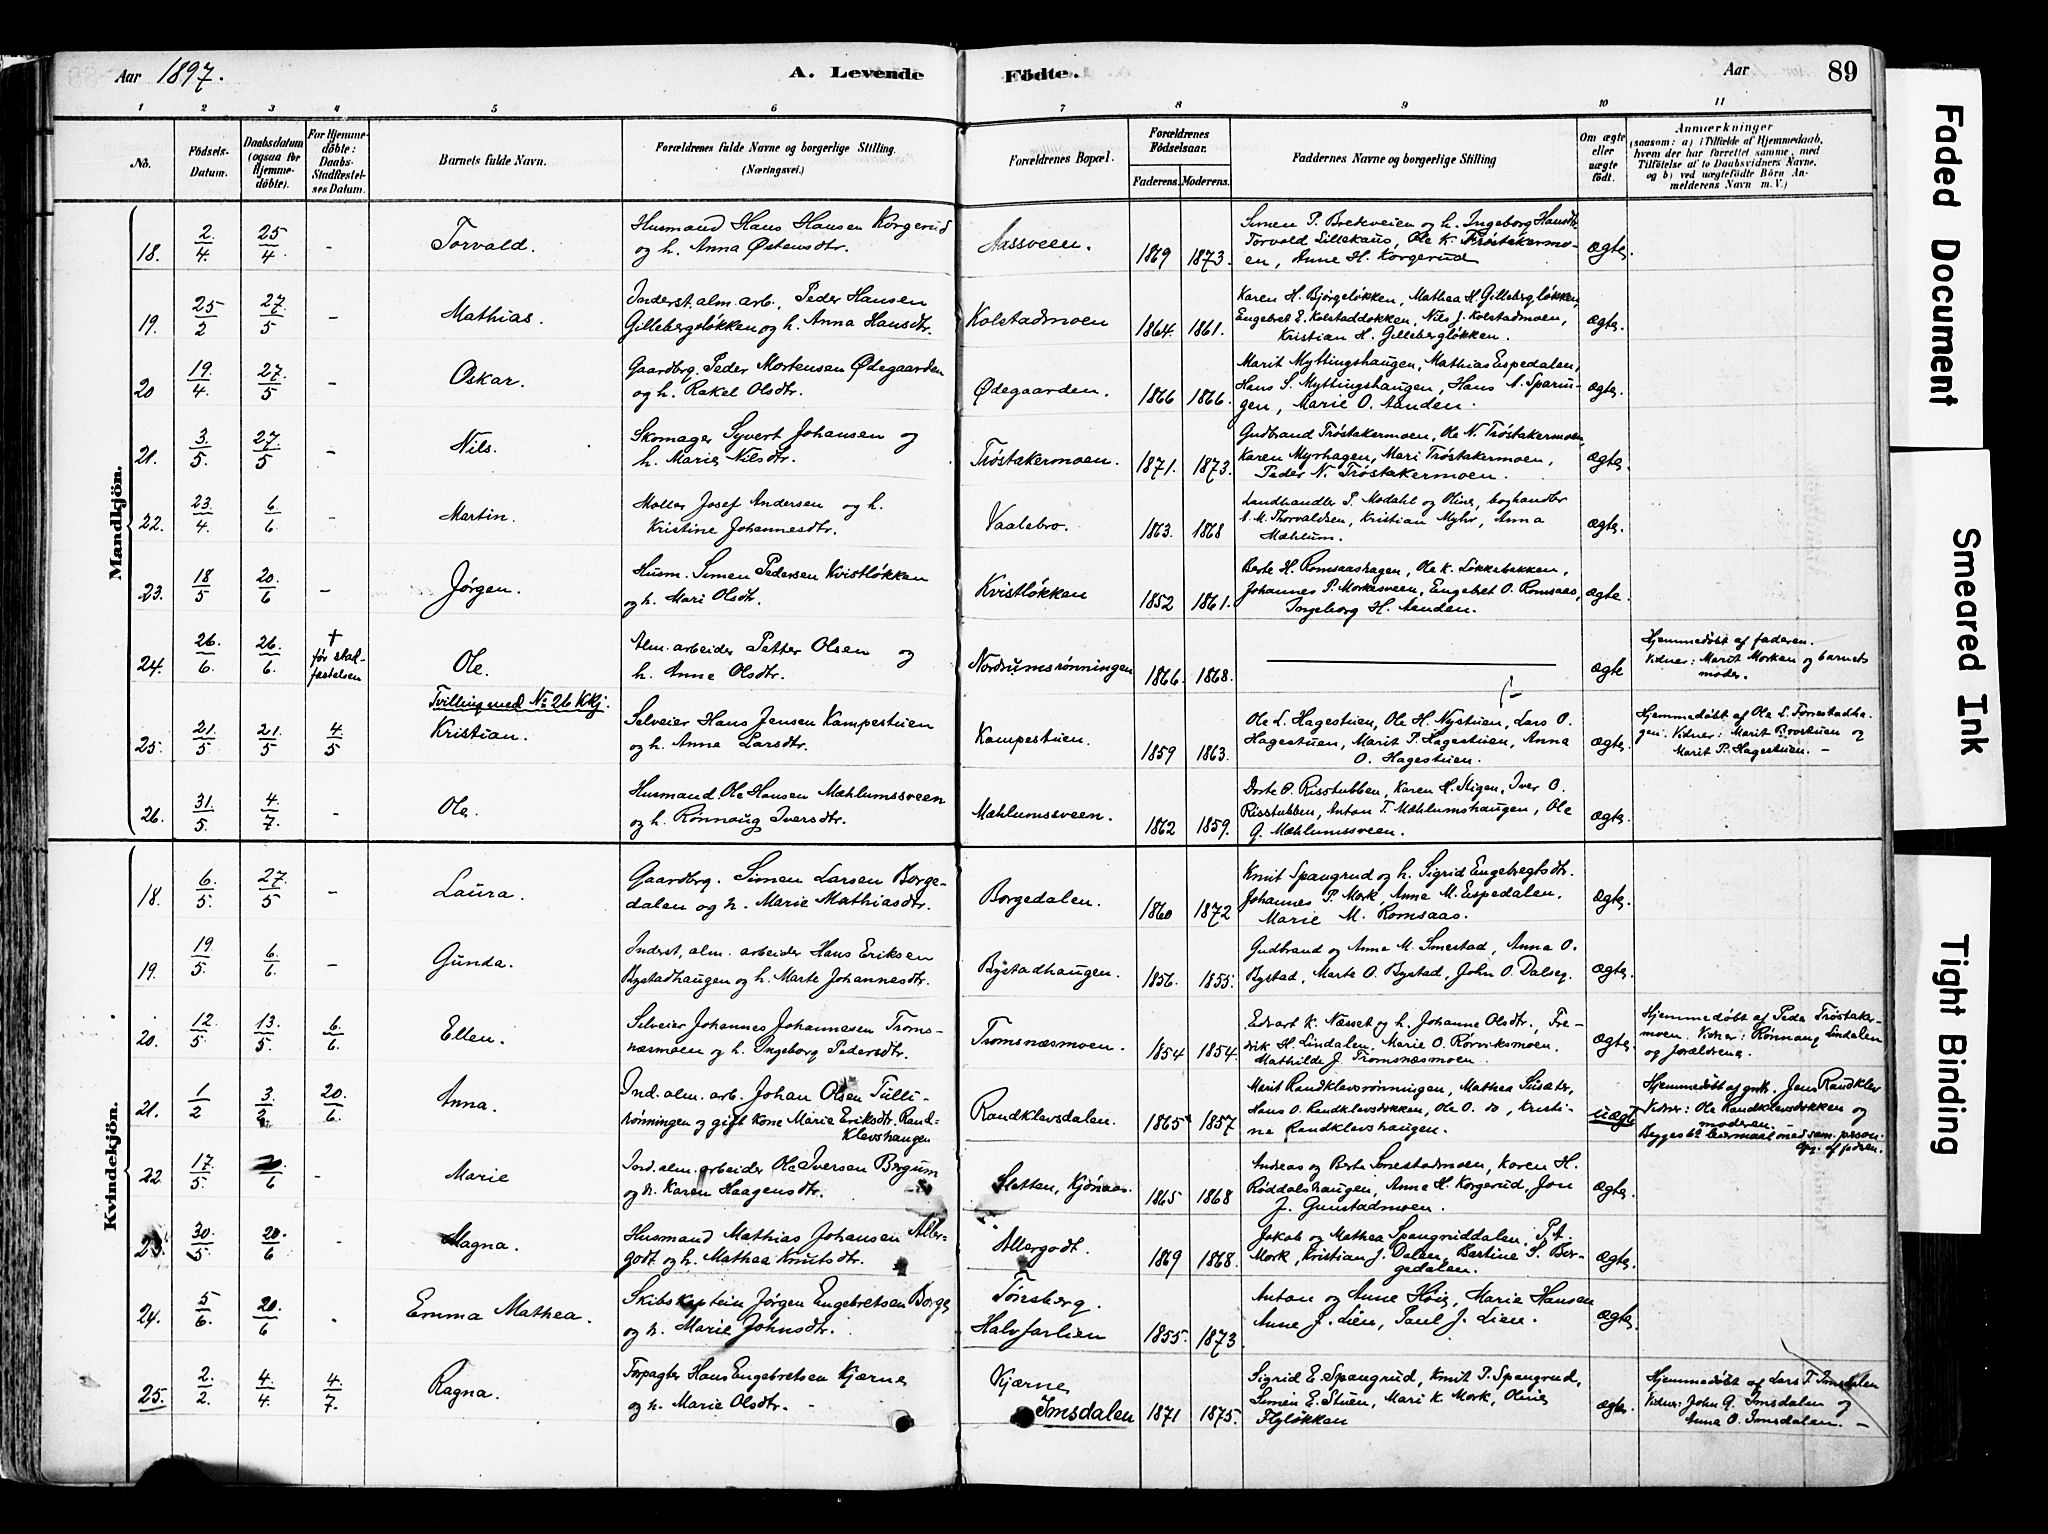 Aar 1897.
A. Levende
Födte.
Aar
89
1 2 3 4 5 6 7 8 9 10 11
No.
Födsels-
Datum.
Daabsdatum
(ogsaa for
Hjemme-
döbte).
For Hjemme-
döbte:
Daabs-
Stadfæstel-
ses Datum.
Barnets fulde Navn.
Forældrenes fulde Navne og borgerlige Stilling
(Næringsvei.)
Forældrenes Bopæl.
Forældrenes
Födselsaar.
Faderens. Moderens.
Faddernes Navne og borgerlige Stilling
Om ægte
eller
uægte
födt.
Anmærkninger
(saasom: a) i Tilfælde af Hjemmedaab,
hvem der har forrettet samme, med
Tilföielse af to Daabsvidners Navne,
og b) ved uægtefödte Börn An-
melderens Navn m. V.)
Mandkjön.
18. 2/4 25/4 - Torvald.
Husmand Hans Hansen Kørgerud
og h. Anna Østensdtr.
Aassveen. 1869 1873.
Simen P. Bredeveien og h. Ingeborg Hansdtr.
Torvald Lillekaus, Ole K. Frøstakermo-
en, Anne H. Korgerud
ægte.
19. 25/2 27/5 - Mathias.
Inderst, alm. arb. Peder Hansen
Gillebergsløkken og h. Anna Hansdtr.
Kolstadmoen 1864. 1861.
Karen H. Bjørgeløkken, Mathea H. Gillebergløkken,
Engebret E. Kolstaddokken, Nils J. Kolstadmoen,
Kristian H. Gillebergløkken.
ægte.
20 19/4 27/5 - Oskar.
Gaardbrg. Peder Mortensen Ødegaarden
og h. Rakel Olsdtr.
Ødegaarden. 1866 1866.
Marit Myttingshaugen, Mathias Espedalen,
Hans S. Myttingshaugen, Hans N. Sparin-
gen, Marie O. Aanden.
ægte.
21. 3/5. 27/5 - Nils.
Skomager Syvert Johansen og
h. Marie Nilsdtr.
Trøstakermoen. 1871. 1873.
Gudbrand Trøstakermoen, Ole N. Trøstakermoen,
Karen Myrhagen, Mari Trøstakermoen,
Peder N. Trøstakermoen.
ægte.
22. 23/4. 6/6 - Martin.
Møller Josef Andersen og h.
Kristine Johannesdtr.
Vaalebro. 1863. 1868
Landhandler P. Modahl og Oline, boghandler
A. M. Thorvaldsen, Kristian Myhr, Anna
Mæhlum.
ægte.
23. 18/5 20/6 - Jørgen.
Husm. Simen Pedersen Kvistløkken
og h. Mari Olsdtr.
Kvistløkken 1852 1861.
Berte H. Romsaashagen, Ole K. Løkkebakken,
Johannes P. Morkesveen, Engebret O. Romsaas,
Ingeborg H. Aanden.
ægte.
24. 26/6. 26/6 † før stad-
fæstelsen
Ole.
Alm. arbeider Petter Olsen og
h. Anne Olsdtr.
Nordrumsrønningen 1866. 1868.
ægte
Hjemmedøbt af faderen.
Vidner: Marit Morken og barnets
moder.
Tvilling med No 26 Kkj.
25. 21/5 21/5 4/5 Kristian.
Selveier Hans Jensen Kampestuen
og h. Anne Larsdtr.
Kampestuen. 1859 1863.
Ole L. Hagestuen, Ole H. Nystuen, Lars O.
Hagestuen, Marit P. Hagestuen, Anna
O. Hagestuen.
ægte.
Hjemmedøbt af Ole L. Fonestadha-
gen. Vidner: Marit Brostuen og
Marit P. Hagestuen. -
26. 31/5. 4/7. - Ole.
Husmand Ole Hansen Mæhlumssveen
og h. Rønnaug Iversdtr.
Mæhlumssveen. 1862 1859.
Dorte O. Risstubben, Karen H. Stigen, Iver O.
Risstubben, Anton T. Mæhlumshaugen, Ole
G. Mæhlumssveen.
ægte.
Kvindekjön.
18. 6/5. 27/5 - Laura.
Gaardbrg. Simen Larsen Borge-
dalen og h. Marie Mathiasdtr.
Borgedalen. 1860 1872
Knut Spangrud og h. Sigrid Engebregtsdtr.
Johannes P. Mork, Anne M. Espedalen,
Marie M. Romsaas.
ægte.
19. 19/5. 6/6. - Gunda.
Inderst, alm. arbeider Hans Eriksen
Bystadhaugen og h. Marte Johannesdtr.
Bystadhaugen. 1856. 1855.
Gudbrand og Anne M. Smestad, Anna O.
Bystad, Marte O. Bystad, John O. Dalseg.
ægte.
20. 12/5 13/5. 6/6. Ellen.
Selveier Johannes Johannesen Troms-
næsmoen og h. Ingeborg Pedersdtr.
Tromsnæsmoen. 1854 1854.
Edvart K. Næsset og h. Johanne Olsdtr., Fre-
drik H. Lindalen, Marie O. Rørviksmoen,
Mathilde J. Tromsnæsmoen.
ægte.
Hjemmedøbt af Peder Trøstaker-
moen. Vidner: Rønnaug Lindalen
og forældrene.
21. 1/2 3/2 20/6. Anna.
Ind. alm. arb. Johan Olsen Tulli-
rønningen og gift kone Marie Eriksdtr. Rand-
klevshaugen
Randklevsdalen. 1865 1857
Marit Randklevsrønningen, Mathea Susæter,
Hans O. Randklevsdokken, Ole O. do, Kristi-
ne Randklevshaugen.
uægt.
Hjemmedøbt af grbr. Jens Randklev
Vidner: Ole Randklevsdokken og
moderen.
Begges 6te leiermaal med sam. person.
Opg. af jordm.
22 17/5. 20/6 - Marie
Ind. alm. arbeider Ole Iversen Bergum
og h. Karen Haagensdtr.
Sletten, Kjønaas. 1865 1868
Andreas og Berte Smestadmoen, Karen H.
Røddalshaugen, Anne H. Korgerud, Jon
J. Gunstadmoen.
ægte.
23. 30/5. 20/6 - Magna.
Husmand Mathias Johansen Aller-
godt og h. Mathea Knutsdtr.
Allergodt. 1869 1868.
Jakob og Mathea Spangruddalen, P. A.
Mork, Kristian J. Dalen, Bertine S. Bor-
gedalen.
ægte.
24. 5/6. 20/6 . Emma Mathea.
Skibskaptein Jørgen Engebretsen Borge
og h. Marie Johnsdtr.
Tønsberg.
Halvfarlien 1855. 1873
Anton og Anne Høie, Marie Hansen
Anne J. Lien, Paul J. Lien.
ægte.
25. 2/2. 4/4. 4/7 Ragna.
Forpagter Hans Engebretsen Kjærne
og h. Marie Olsdtr. -
Kjærne
Imsdalen 1871 1875.
Sigrid E. Spangrud, Knut P. Spangrud,
Simen E. Stuen, Mari K. Mork, Oline
Flyløkken
ægte.
Hjemmedøbt af Lars T. Imsdalen
Vidner: John G. Imsdalen og
Anne O. Imsdalen. -
Faded Document
Smeared Ink
Tight Binding